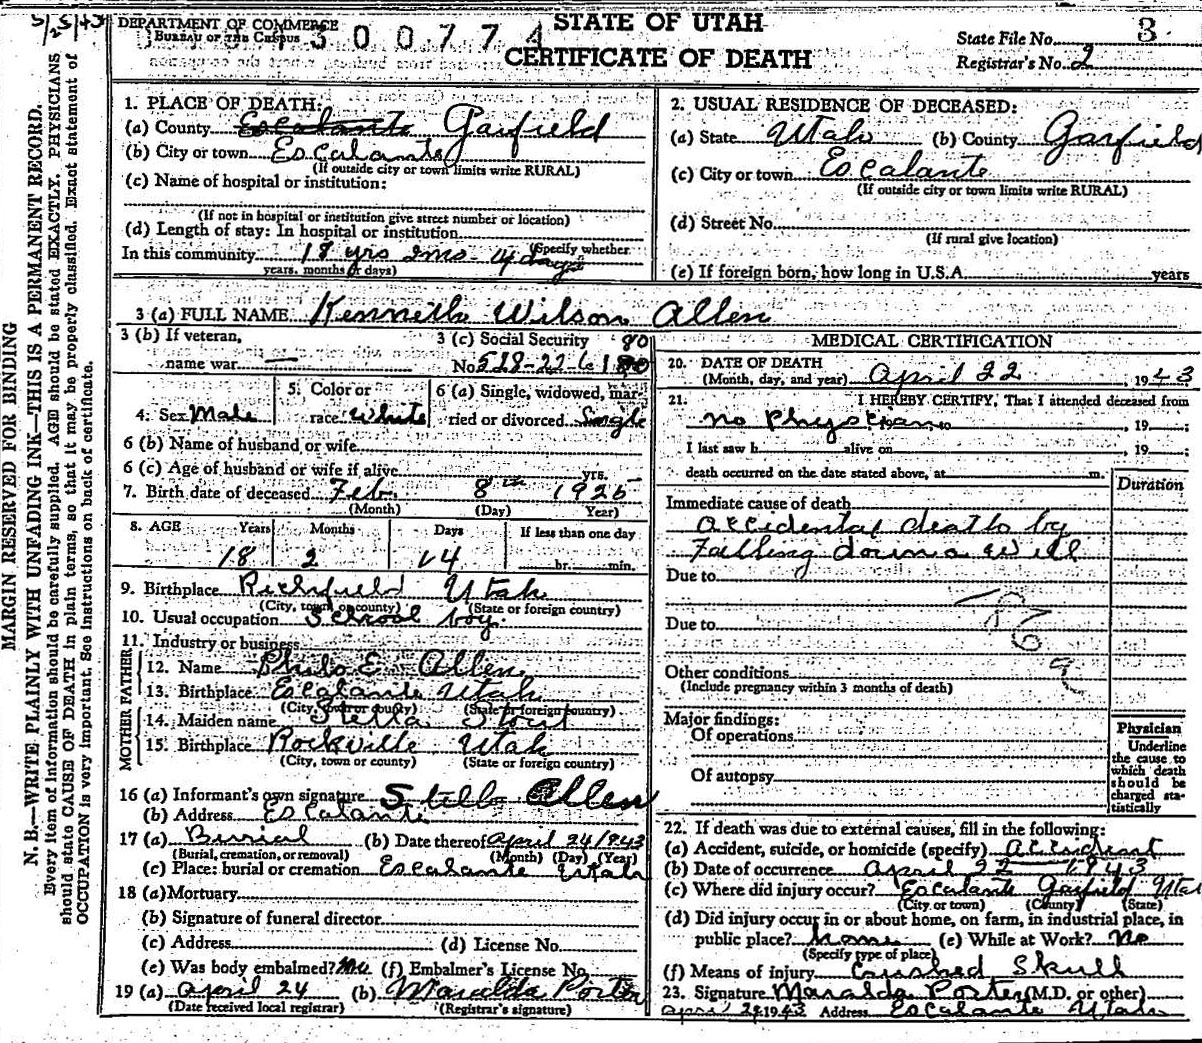 5/25/43
DEPARTMENT OF COMMERCE
BUREAU OF THE CENSUS
300774
STATE OF UTAH
CERTIFICATE OF DEATH
State File No. 3
Registrar's No. 2
MARGIN RESERVED FOR BINDING
N. B.—WRITE PLAINLY WITH UNFADING INK—THIS IS A PERMANENT RECORD.
Every item of information should be carefully supplied. AGE should be stated EXACTLY. PHYSICIANS
should state CAUSE OF DEATH in plain terms, so that it may be properly classified. Exact statement of
OCCUPATION is very important. See instructions on back of certificate.
1. PLACE OF DEATH:
(a) County Escalante Garfield
(b) City or town Escalante
(If outside city or town limits write RURAL)
(c) Name of hospital or institution:
(If not in hospital or institution give street number or location)
(d) Length of stay: In hospital or institution
(Specify whether
In this community 18 yrs 2 mo 14 days
years, months or days)
2. USUAL RESIDENCE OF DECEASED:
(a) State Utah (b) County Garfield
(c) City or town Escalante
(If outside city or town limits write RURAL)
(d) Street No.
(If rural give location)
(e) If foreign born, how long in U.S.A. years
3 (a) FULL NAME Kenneth Wilson Allen
3 (b) If veteran,
name war —
3 (c) Social Security
No. 528-22-6180
80
4. Sex Male
5. Color or
race White
6 (a) Single, widowed, mar-
ried or divorced Single
6 (b) Name of husband or wife
6 (c) Age of husband or wife if alive yrs.
7. Birth date of deceased Feb. 8th 1925
(Month) (Day) Year)
8. AGE Years Months Days If less than one day
18 2 14 hr. min.
9. Birthplace Richfield Utah
(City, town or county) (State or foreign country)
10. Usual occupation School boy.
11. Industry or business
FATHER
12. Name Philo E. Allen
13. Birthplace Escalante Utah
(City, town or county) (State or foreign country)
MOTHER
14. Maiden name Stella Stout
15. Birthplace Rockville Utah
(City, town or county) (State or foreign country)
16 (a) Informant's own signature Stella Allen
(b) Address Escalante
17 (a) Burial (b) Date thereof April 24 1943
(Burial, cremation, or removal) (Month) (Day) (Year)
(c) Place: burial or cremation Escalante Utah
18 (a) Mortuary
(b) Signature of funeral director
(c) Address (d) License No.
(e) Was body embalmed? No (f) Embalmer's License No.
19 (a) April 24 (b) Maralda Porter
(Date received local registrar) (Registrar's signature)
MEDICAL CERTIFICATION
20. DATE OF DEATH
(Month, day, and year) April 22, 1943
21. I HEREBY CERTIFY, That I attended deceased from
no Physician to , 19 ;
I last saw h alive on , 19 ;
death occurred on the date stated above, at m.
Duration
Immediate cause of death
accidental death by
Falling down a well
Due to
Due to
Other conditions
(Include pregnancy within 3 months of death)
Major findings:
Of operations
Of autopsy
Physician
Underline
the cause to
which death
should be
charged sta-
tistically
22. If death was due to external causes, fill in the following:
(a) Accident, suicide, or homicide (specify) accident
(b) Date of occurrence April 22 1943
(c) Where did injury occur? Escalante Garfield Utah
(City or town) (County) (State)
(d) Did injury occur in or about home, on farm, in industrial place, in
public place? home (e) While at Work? No
(Specify type of place)
(f) Means of injury Crushed Skull
23. Signature Maralda Porter (M.D. or other)
April 24 1943 Address Escalante Utah